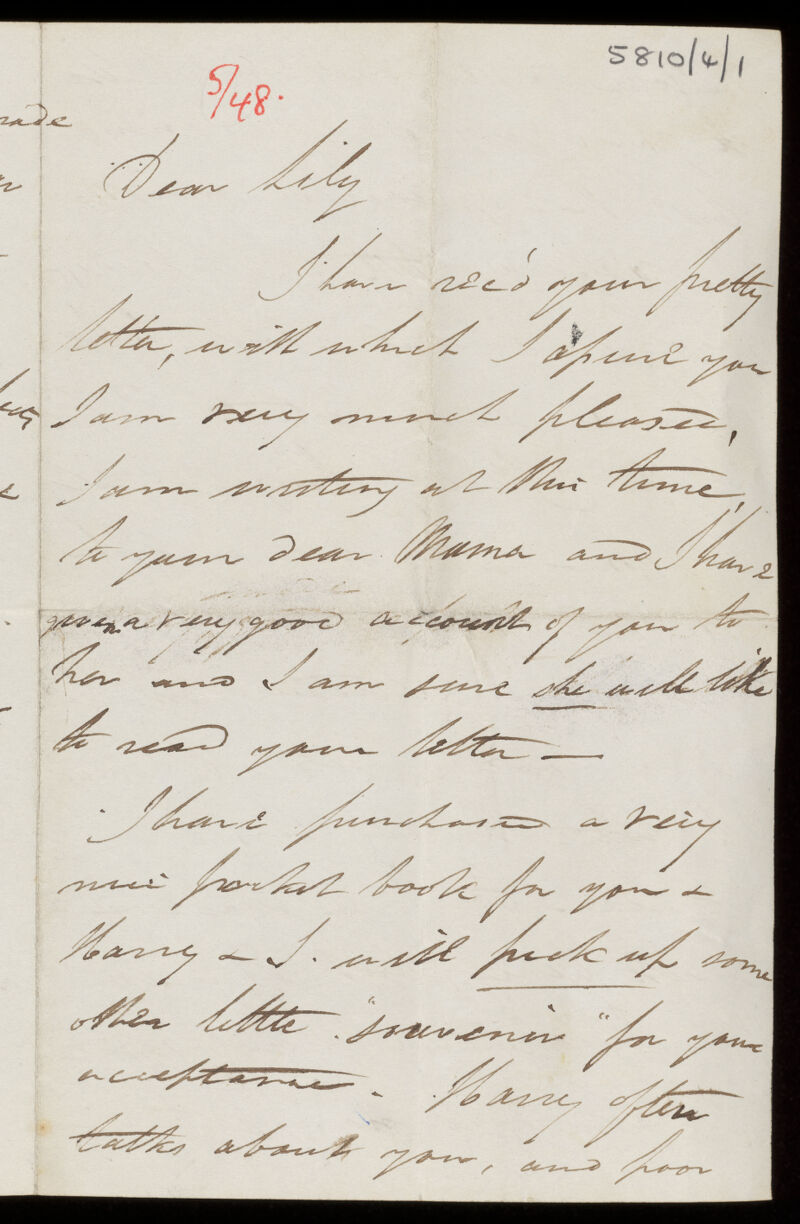 5810/4/1
5/48.
Dear Lily
I have rec'd your pretty
letter, with which I assure you
I am very much pleased,
I am writing at this time,
to your dear Mama and I have
given a very good account of you to
her and I am sure she will like
to read your letter —
I have purchased a very
nice pocket book for you &
Harry & I. will pick up some
other little "souvenir" for your
acceptance. Harry often
talks about you, and poor